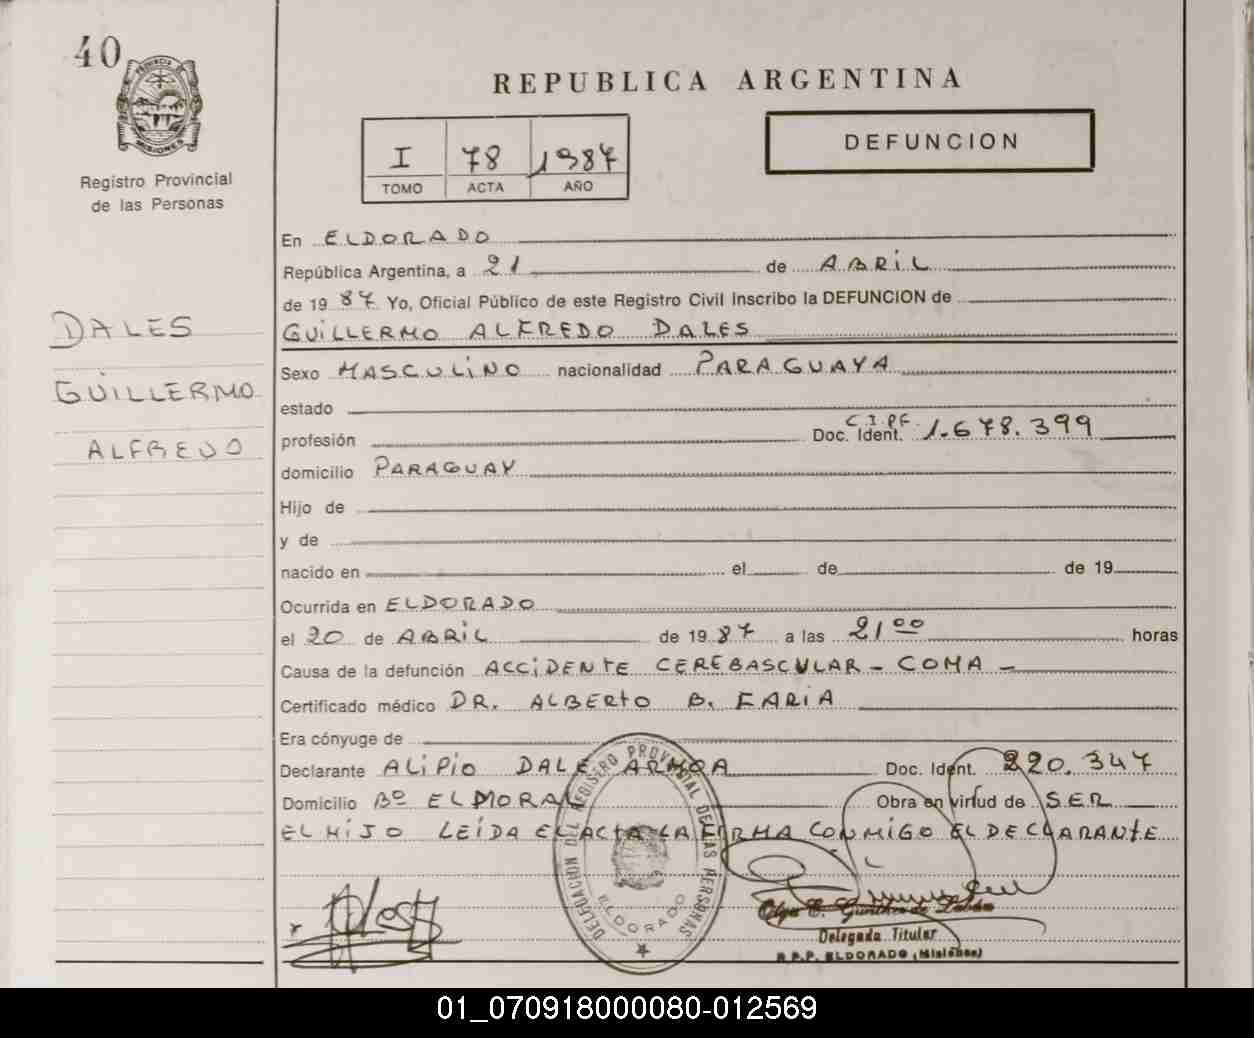 40
PROVINCIA DE MISIONES
Registro Provincial
de las Personas
DALES
GUILLERMO
ALFREDO
REPUBLICA ARGENTINA
I 78 1987
TOMO ACTA AÑO
DEFUNCION
En ELDORADO
República Argentina, a 21 de ABRIL
de 19 87 Yo, Oficial Público de este Registro Civil Inscribo la DEFUNCION de
GUILLERMO ALFREDO DALES
Sexo MASCULINO nacionalidad PARAGUAYA
estado
profesión Doc. Ident. C.I.PF. 1.678.399
domicilio PARAGUAY
Hijo de
y de
nacido en el de de 19
Ocurrida en ELDORADO
el 20 de ABRIL de 19 87 a las 21 00 horas
Causa de la defunción ACCIDENTE CEREBASCULAR - COMA -
Certificado médico DR. ALBERTO B. FARIA
Era cónyuge de
Declarante ALIPIO DALE ARMOA Doc. Ident. 220.347
Domicilio Bº EL MORAL Obra en virtud de SER
EL HIJO LEIDA EL ACTA LA FIRMA CONMIGO EL DECLARANTE
DELEGACION DEL REGISTRO PROVINCIAL DE LAS PERSONAS
ELDORADO
Olga E. Gunther de
Delegada Titular
R.P.P. ELDORADO (Misiones)
01_070918000080-012569